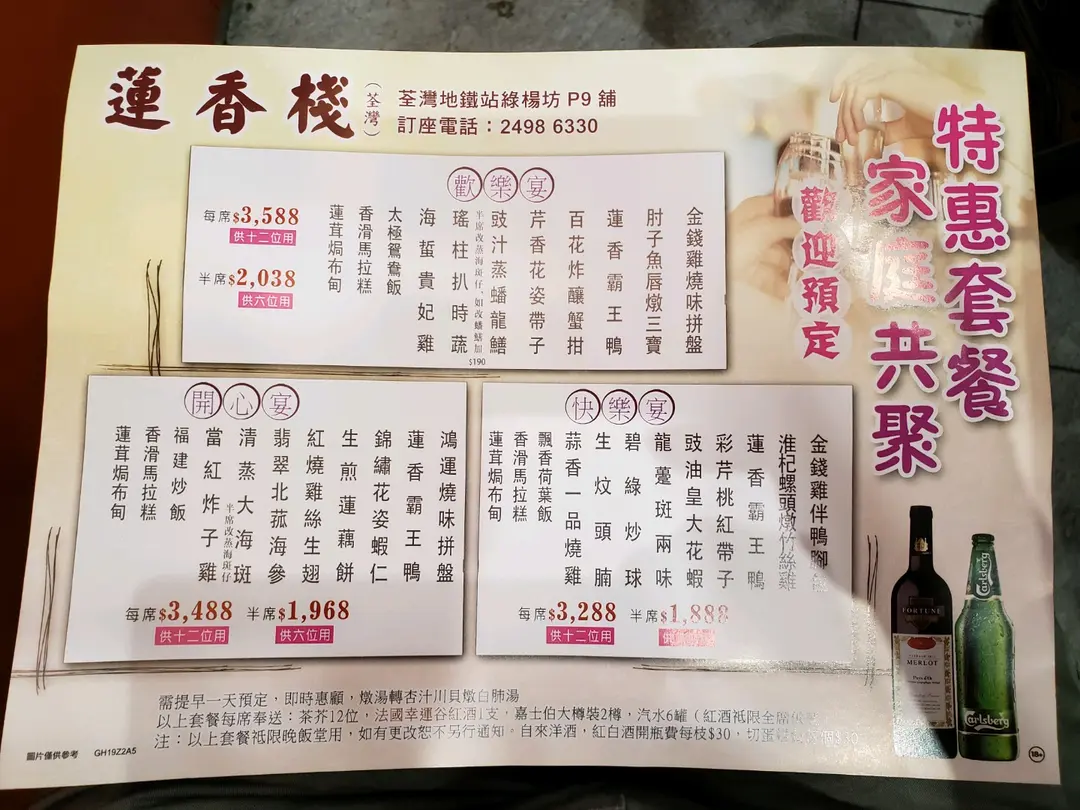 蓮香棧
（荃灣）
荃灣地鐵站綠楊坊 P9 舖
訂座電話：2498 6330
特惠套餐
家 共聚
歡迎預定
歡樂宴
金錢雞燒味拼盤
肘子魚唇燉三寶
蓮香霸王鴨
百花炸釀蟹拑
芹香花姿帶子
豉汁蒸蟠龍鱔
半席改蒸海斑仔，如改蟠龍鱔加$190
瑤柱扒時蔬
海蜇貴妃雞
太極鴛鴦飯
香滑馬拉糕
蓮茸焗布甸
每席$3,588
供十二位用
半席$2,038
供六位用
開心宴
鴻運燒味拼盤
蓮香霸王鴨
錦繡花姿蝦仁
生煎蓮藕餅
紅燒雞絲生翅
翡翠北菰海參
清蒸大海斑
半席改蒸海斑仔
當紅炸子雞
福建炒飯
香滑馬拉糕
蓮茸焗布甸
每席$3,488 半席$1,968
供十二位用 供六位用
快樂宴
金錢雞伴鴨腳
淮杞螺頭燉竹絲雞
蓮香霸王鴨
彩芹桃紅帶子
豉油皇大花蝦
龍躉斑兩味
碧綠炒球
生炆頭腩
蒜香一品燒雞
飄香荷葉飯
香滑馬拉糕
蓮茸焗布甸
每席$3,288 半席$1,888
供十二位用 供 位用
需提早一天預定，即時惠顧，燉湯轉杏汁川貝燉白肺湯
以上套餐每席奉送：茶芥12位，法國幸運谷紅酒1支，嘉士伯大樽裝2樽，汽水6罐（紅酒祗限全席
注：以上套餐祗限晚飯堂用，如有更改恕不另行通知。自來洋酒，紅白酒開瓶費每枝$30，切蛋 個$30
圖片僅供參考 GH19Z2A5
FORTUNE
MERLOT
Carlsberg
Carlsberg
18+